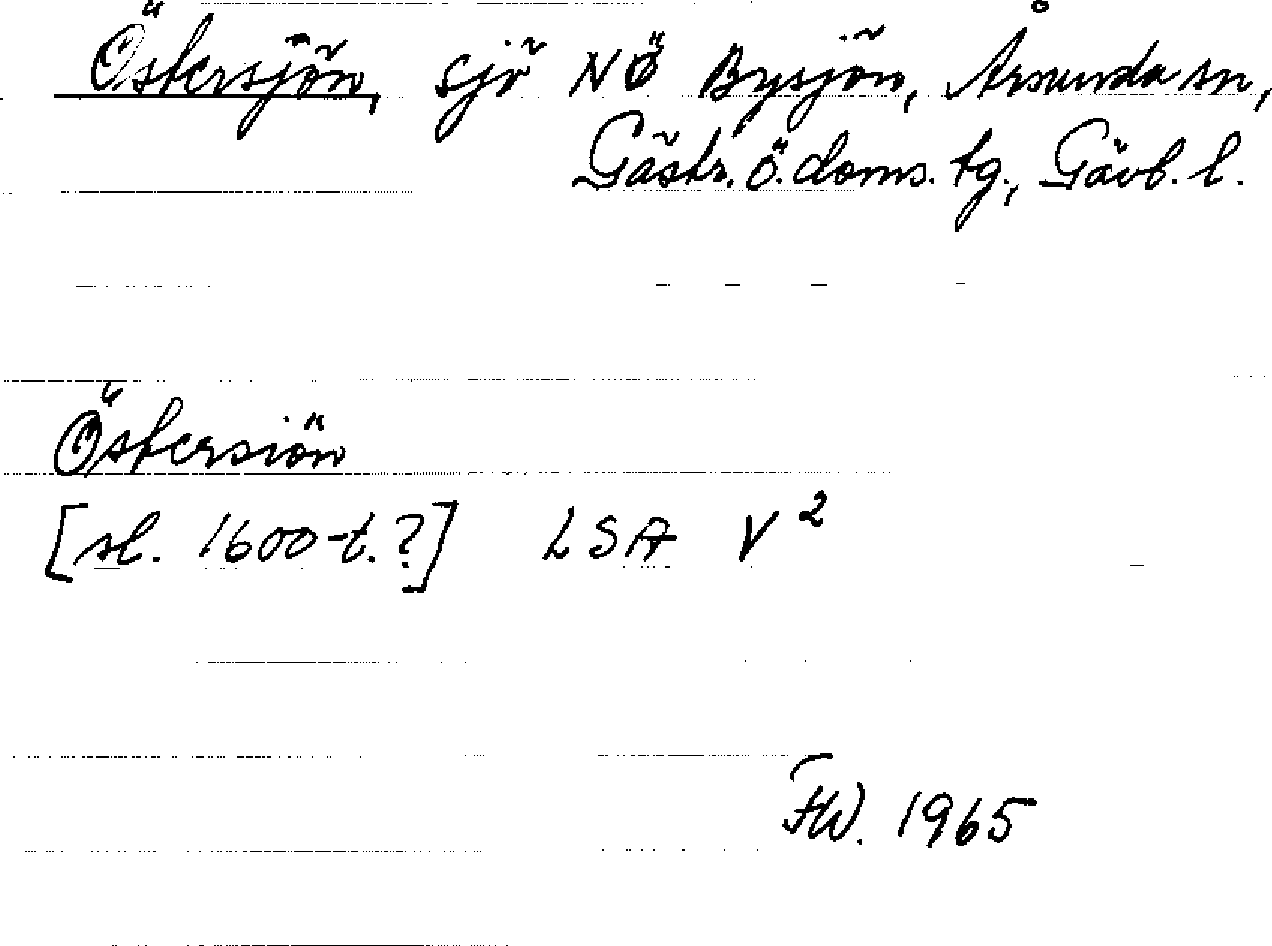 Östersjön, sjö NÖ Bysjön, Årsunda sn,
Gästr. ö. doms. tg., Gävb. l.
Östersiön
[sl. 1600-t.?] LSA V²
FW. 1965